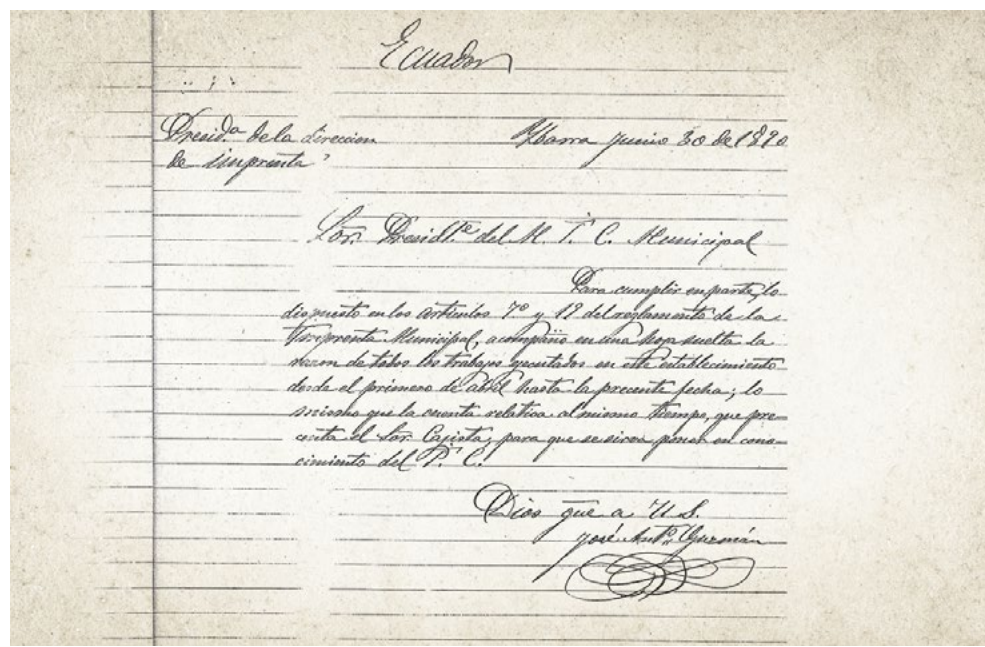 Ecuador
Presid.ª de la direccion
de imprenta
Ybarra junio 30 de 1890
Sor. Presidt.e del M. I. C. Municipal
Para cumplir en parte, lo
dispuesto en los artículos 7º y 12 del reglamento de la
Imprenta Municipal, acompaño en una hoja suelta la
razon de todos los trabajos ejecutados en este establecimiento
desde el primero de abril hasta la presente fecha; lo
mismo que la cuenta relativa al mismo tiempo, que pre-
senta el Sor. Cajista, para que se sirva poner en cono-
cimiento del I. C.
Dios gue a U. S.
José Ant.º Guzmán